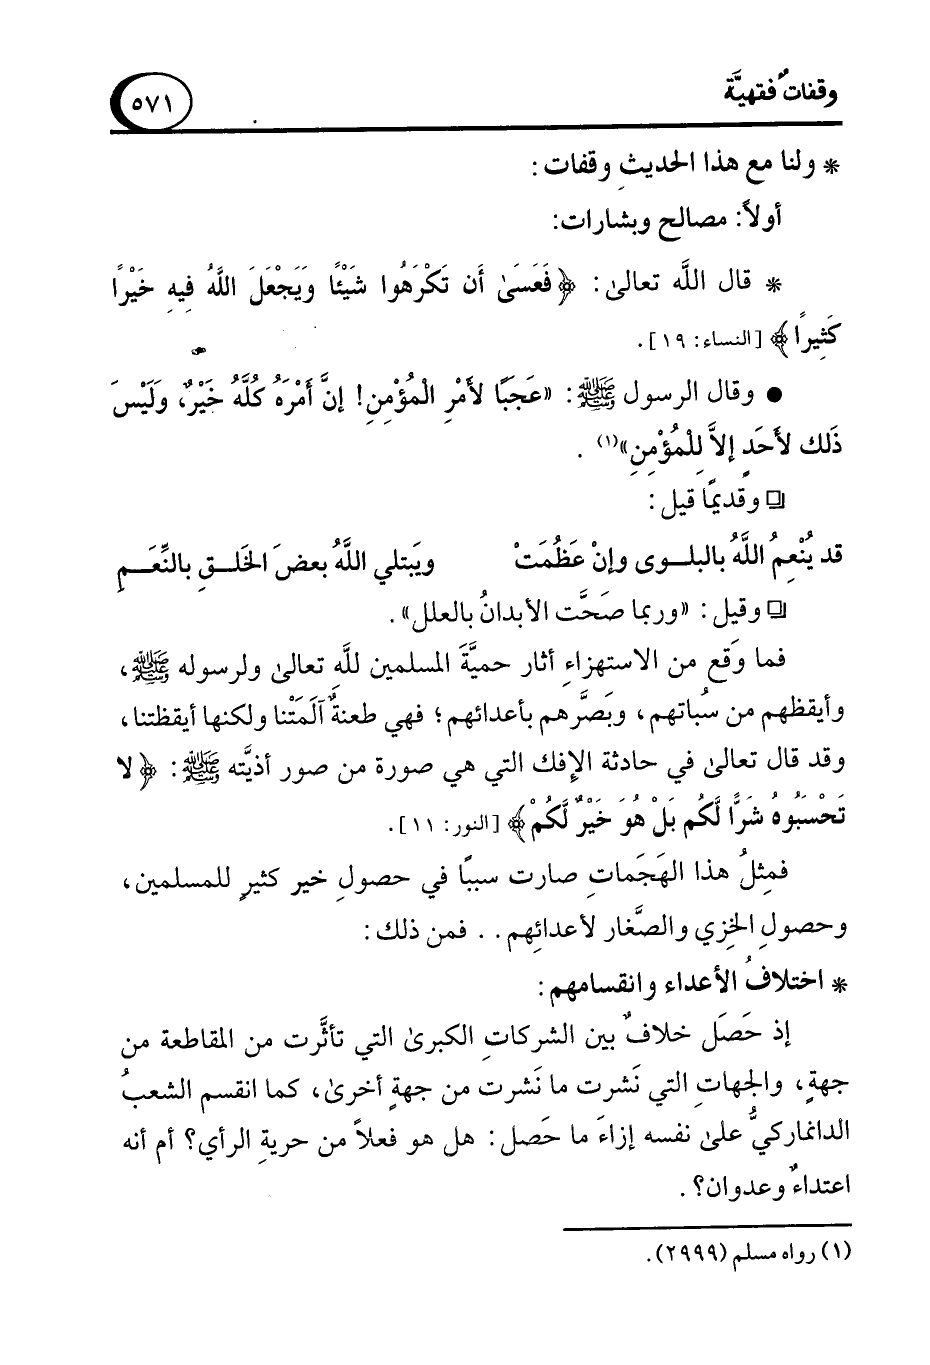 وقفاتٌ فقهيَّة
٥٧١
* ولنا مع هذا الحديثِ وقفات:
أولاً: مصالح وبشارات:
* قال اللَّه تعالىٰ: ﴿فَعَسَىٰ أَن تَكْرَهُوا شَيْئًا وَيَجْعَلَ اللَّهُ فِيهِ خَيْرًا
كَثِيرًا﴾ [النساء: ١٩].
● وقال الرسول ﷺ: «عَجَبًا لأَمْرِ الْمُؤْمِنِ! إنَّ أَمْرَهُ كُلَّهُ خَيْرٌ، وَلَيْسَ
ذَلك لأَحَدٍ إلاَّ لِلْمُؤْمِنِ»(١) .
❏ وقديمًا قيل:
قد يُنْعِمُ اللَّهُ بالبلــوى وإنْ عَظُمَتْ ويَبتلي اللَّهُ بعضَ الخَلــقِ بالنِّعَــمِ
❏ وقيل: «وربما صَحَّت الأبدانُ بالعلل».
فما وقَع من الاستهزاءِ أثار حميَّةَ المسلمين للَّهِ تعالىٰ ولرسوله ﷺ،
وأيقظهم من سُباتهم، وبَصَّرهم بأعدائهم؛ فهي طعنةٌ آلَمَتْنا ولكنها أيقظتنا،
وقد قال تعالىٰ في حادثة الإفك التي هي صورة من صور أذيَّته ﷺ: ﴿لا
تَحْسَبُوهُ شَرًّا لَّكُم بَلْ هُوَ خَيْرٌ لَّكُمْ﴾ [النور: ١١].
فمِثلُ هذا الهَجَماتِ صارت سببًا في حصولِ خير كثيرٍ للمسلمين،
وحصولِ الخِزي والصَّغار لأعدائِهم . . فمن ذلك:
* اختلافُ الأعداء وانقسامهم:
إذ حَصَل خلافٌ بين الشركاتِ الكبرىٰ التي تأثَّرت من المقاطعة من
جهةٍ، والجهاتِ التي نَشرت ما نَشرت من جهةٍ أخرىٰ، كما انقسم الشعبُ
الدانماركيُّ علىٰ نفسه إزاءَ ما حَصل: هل هو فعلاً من حريةِ الرأي؟ أم أنه
اعتداءٌ وعدوان؟.
(١) رواه مسلم (٢٩٩٩).